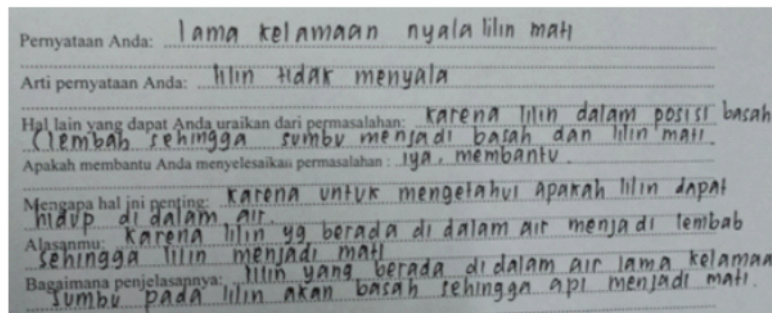 Pernyataan Anda: lama kelamaan nyala lilin mati
Arti pernyataan Anda: lilin tidak menyala
Hal lain yang dapat Anda uraikan dari permasalahan: karena lilin dalam posisi basah
(lembab sehingga sumbu menjadi basah dan lilin mati
Apakah membantu Anda menyelesaikan permasalahan : iya, membantu.
Mengapa hal ini penting: karena untuk mengetahui apakah lilin dapat
hidup di dalam air.
Alasanmu: karena lilin yg berada di dalam air menjadi lembab
sehingga lilin menjadi mati
Bagaimana penjelasannya: lilin yang berada di dalam air lama kelamaa
sumbu pada lilin akan basah sehingga api menjadi mati.